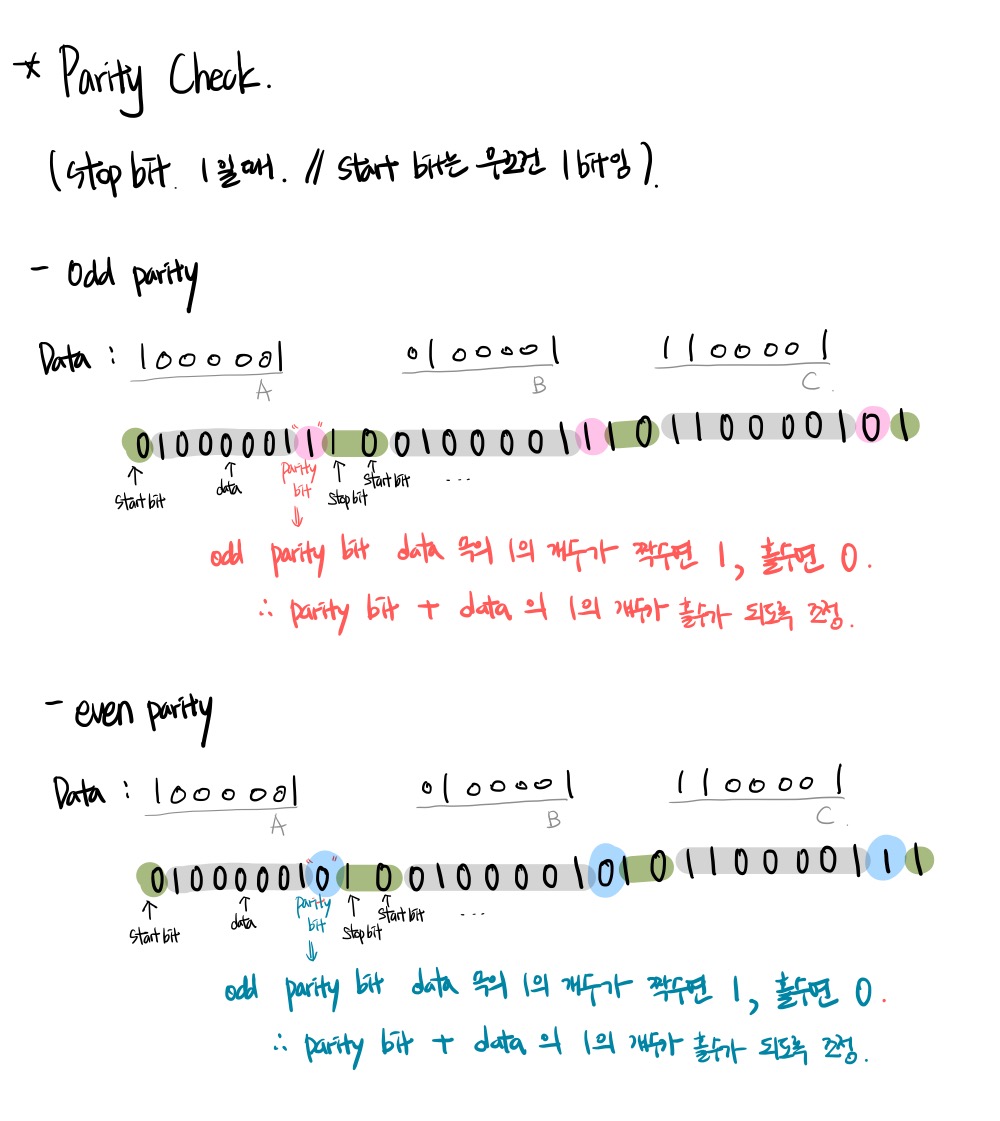 * Parity Check.
(stop bit. 1일때. // start bit는 무조건 1bit임).
- Odd parity
Data : 1000001 0100001 1100001
A B C.
0 1000001 "1" 1 0 0100001 1 1 0 1100001 0 1
↑ start bit ↑ data parity bit ↑ stop bit ↑ start bit ...
⇓
odd parity bit data 쪽의 1의 개수가 짝수면 1, 홀수면 0.
∴ parity bit + data의 1의 개수가 홀수가 되도록 조정.
- even parity
Data : 1000001 0100001 1100001
A B C.
0 1000001 "0" 1 0 0100001 0 1 0 1100001 1 1
↑ start bit ↑ data parity bit ↑ stop bit ↑ start bit ...
⇓
odd parity bit data 쪽의 1의 개수가 짝수면 1, 홀수면 0.
∴ parity bit + data의 1의 개수가 홀수가 되도록 조정.